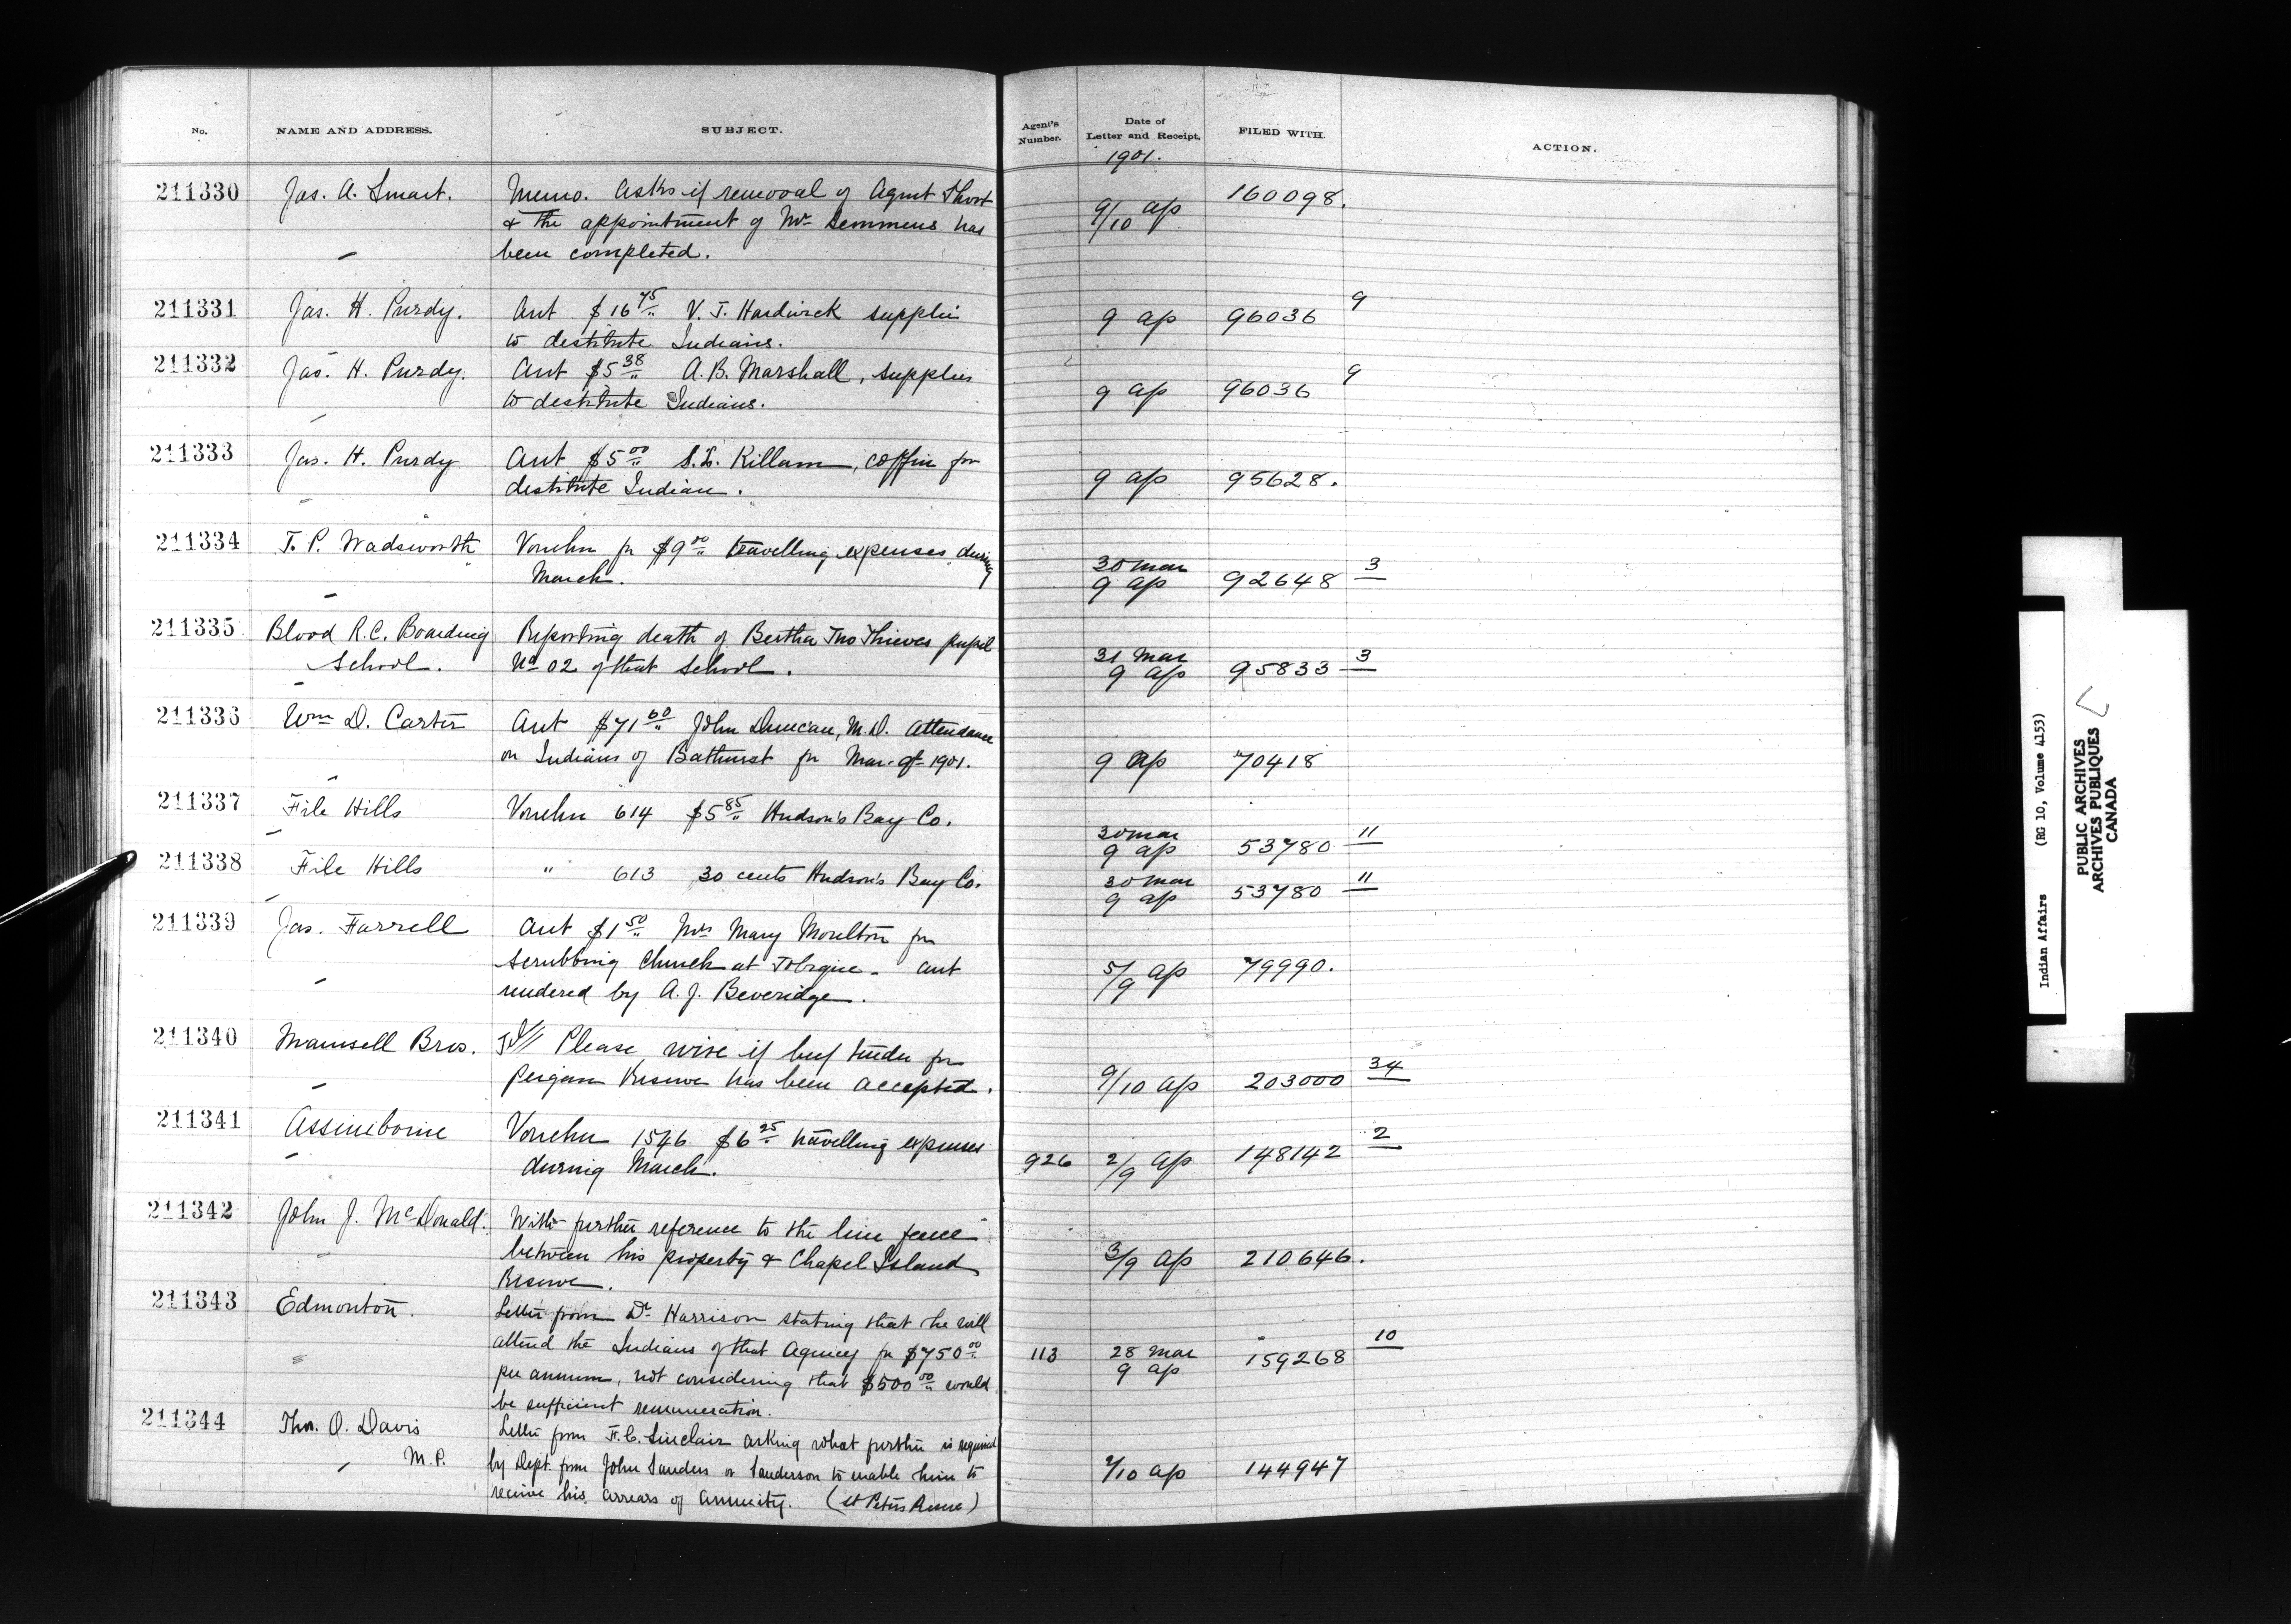 No. NAME AND ADDRESS. SUBJECT. Agent's Number. Date of Letter and Receipt. FILED WITH. ACTION.
1901.
211330 Jas. A. Smart. Memo. Asks if removal of Agent Short 160098.
& the appointment of Mr Semmens has 9/10 ap
been completed.
211331 Jas. H. Purdy. Acct $16 75 V. J. Hardwick supplies 9 ap 96036 9
to destitute Indians.
211332 Jas. H. Purdy. Acct $5 38 A. B. Marshall, supplies 9 ap 96036 9
to destitute Indians.
211333 Jas. H. Purdy Acct $5 00 S. L. Killam, coffin for
destitute Indian. 9 ap 95628.
211334 T. P. Wadsworth Voucher for $9 00 travelling expenses during 30 mar
March. 9 ap 92648 3
211335 Blood R.C. Boarding Reporting death of Bertha Two Thieves pupil 31 Mar
School. No 02 of that School. 9 ap 95833 3
211336 Wm D. Carter Acct $71 60 John Duncan, M.D. Attendance
on Indians of Bathurst for Mar. qr 1901. 9 ap 70418
211337 File Hills Voucher 614 $5 85 Hudson's Bay Co. 30 mar
9 ap 53780 11
211338 File Hills " 613 30 cents Hudson's Bay Co. 30 mar
9 ap 53780 11
211339 Jas. Farrell Acct $1 50 Mrs Mary Moulton for
scrubbing Church at Tobique - acct 5/9 ap 79990.
rendered by A. J. Beveridge.
211340 Maunsell Bros. Tel// Please wire if beef tender for
Peigan Reserve has been accepted. 9/10 ap 203000 34
211341 Assineboine Voucher 1546 $6 25 travelling expenses
during March. 926 2/9 ap 148142 2
211342 John J. McDonald. With further reference to the line fence
between his property & Chapel Island 3/9 ap 210646.
Reserve.
211343 Edmonton. Letter from Dr Harrison stating that he will
attend the Indians of that Agency for $750 00 113 28 mar 159268 10
per annum, not considering that $500 00 would 9 ap
be sufficient remuneration.
211344 Thos. O. Davis Letter from F. C. Sinclair asking what further is required
M.P. by Dept. from John Sanders or Sanderson to enable him to /10 ap 144947
receive his arrears of annuity. (St Peters Reserve)
Indian Affairs (RG 10, Volume 4153)
PUBLIC ARCHIVES
ARCHIVES PUBLIQUES
CANADA